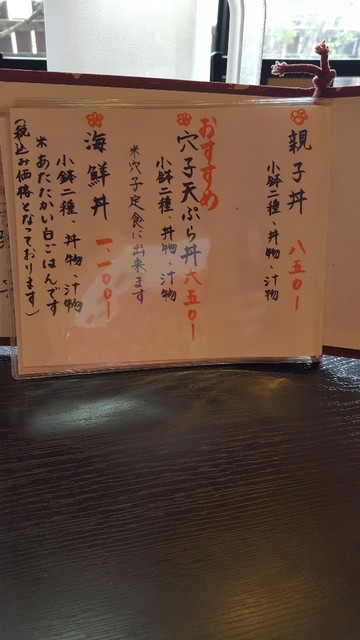 親子丼 八五〇ー
小鉢二種・丼物・汁物
おすすめ
穴子天ぷら丼 六五〇ー
小鉢二種・丼物・汁物
※穴子定食に出来ます
海鮮丼 一、一〇〇ー
小鉢二種・丼物・汁物
※あたたかい白ごはんです
(税込み価格となっております)